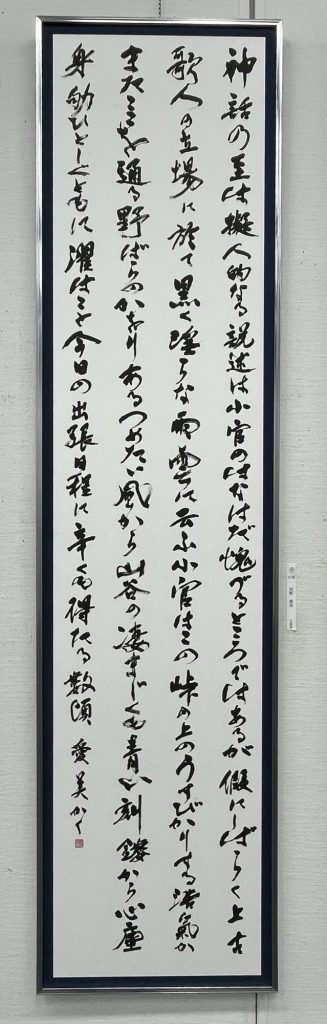 神話乃至は擬人的なる説述は小官のはなはだ愧づるところではあるが假にしばらく上古
歌人の立場に於て黒く淫らな雨雲に云ふ小官はこの峠の上のうすびかりする浩氣か
またこゝを通る野ばらのかほりあるつめたい風から山谷の凄まじくも青い刻鏤から心塵
身劬ひとしくともに濯はうと今日の出張日程に辛くも得たる数頃 愛美かく